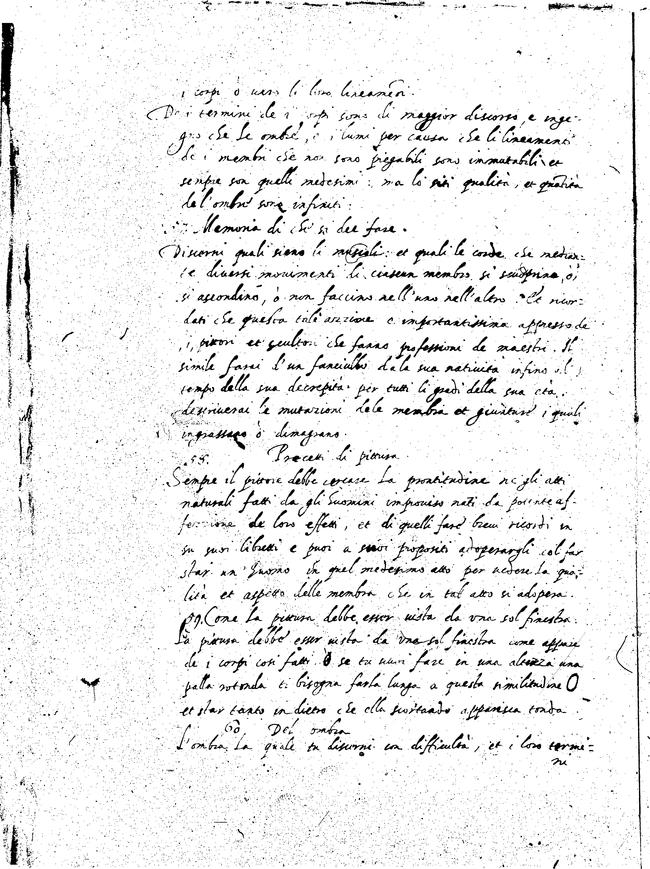 i corpi ò uero li loro lineamẽti.
De i termini de i corpi sono di maggior discorso, e inge-
gno che le ombre, e i lumi per causa che li lineamenti
de i membri che non sono piegabili sono immutabili et
sempre son quelli medesimi: ma li siti qualità, et quãtità
de l'ombre sono infiniti:
Memoria di chi si dee fare.
Discorni quali sieno li muscoli: et quali le corde che median-
te diversi movimenti di ciascun membro si scuoprino, ò
si ascondino, ò non faccino nell'uno nell'altro. Et ricor-
dati che questa tale azzione e importantissima appresso de
i pittori et scultori che fanno professioni de maestri. Il
simile farai d'un fanciullo dala sua natività infino al
tempo della sua decrepità per tutti li gradi della sua età
descriverai le mutazioni dele membra et giunture i quali
ingrassano ò dimagrano.
58. Precetti di pittura
Sempre il pittore debbe cercare la prontitudine ne gli atti
naturali fatti da gli huomini improviso nati da potente af-
fezzione de loro effetti, et di quelli fare brevi ricordi in
su suoi libretti e puoi a suoi propositi adoperargli col far
star un huomo in quel medesimo atto per vedere la qua-
lità et aspetto delle membra che in tal atto si adopera.
59. Come la pittura debbe esser uista da una sol finestra.
La pittura debbe esser uista da una sol finestra come appare
de i corpi così fatti O se tu uuoi fare in una altezza una
palla rotonda ti bisogna farla lunga a questa similitudine O
et star tanto in dietro che ella scortando apparisca tonda
60 Del ombra
L'ombra la quale tu discorni con difficultà, et i loro termi=
ni